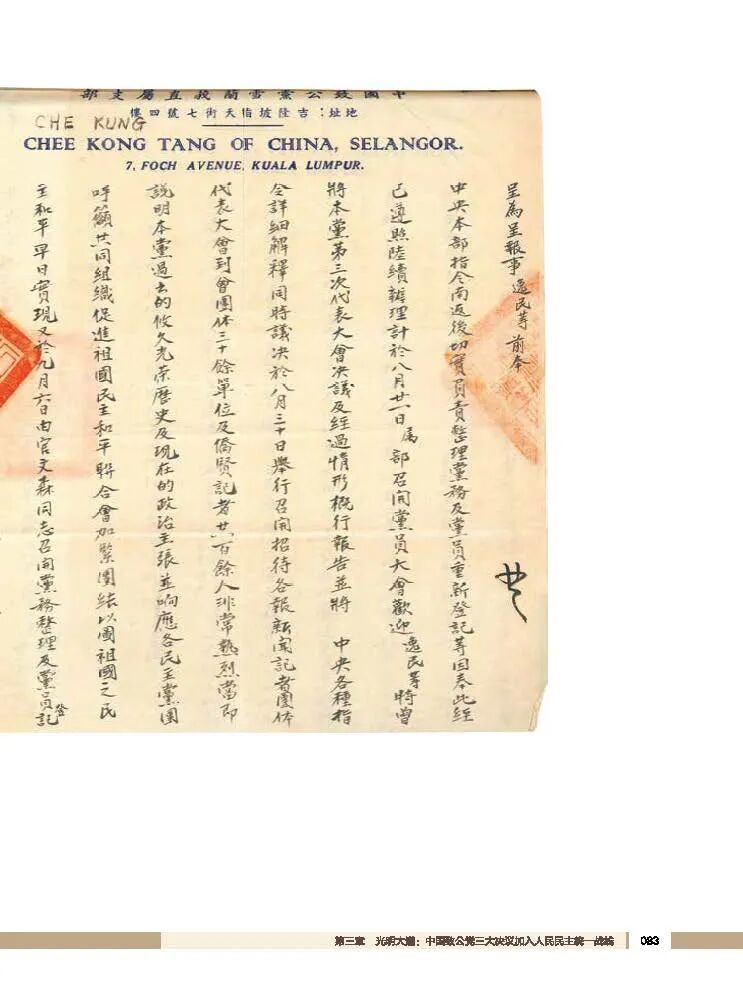 中國致公黨雪蘭莪直屬支部
地址：吉隆坡指天街七號四樓
CHE KUNG
CHEE KONG TANG OF CHINA, SELANGOR.
7, FOCH AVENUE, KUALA LUMPUR.
呈為呈報事 逸民等 前奉
中央本部指令南返後切實負責整理黨務及黨員重新登記等因奉此經
已遵照陸續辦理計於八月廿一日屬部召開黨員大會歡迎 逸民等 時曾
將本黨第三次代表大會決議及經過情形概行報告並將 中央各種指
令詳細解釋同時議決於八月三十日舉行召開招待各報新聞記者團体
代表大會到會團体三十餘單位及僑賢記者百餘人非常熱烈當即
説明本黨過去的攸久光荣歷史及現在的政治主張並响應各民主黨團
呼籲共同組織促進祖國民主和平聯合會加緊團結以圖祖國之民
主和平早日實現又於九月六日由官文森同志召開黨務整理及黨員登記
第三章 光明大道：中国致公党三大决议加入人民民主统一战线 083